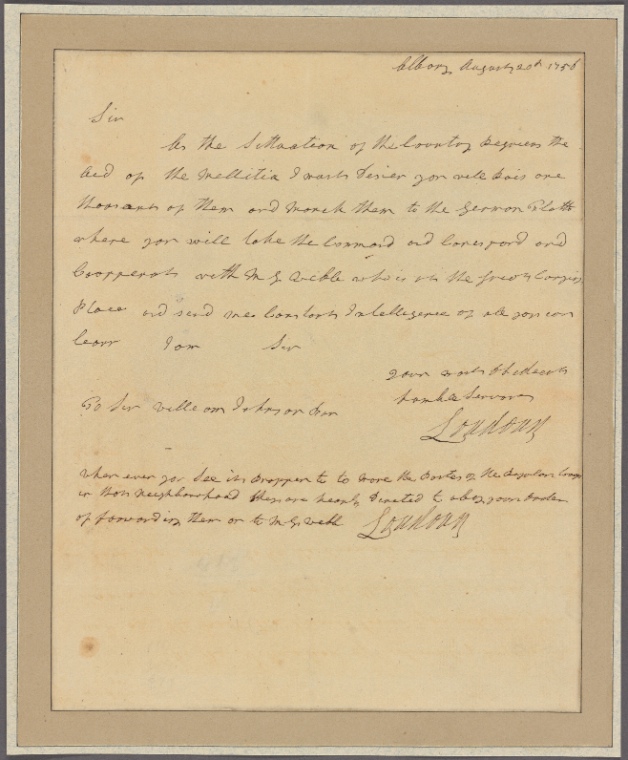 Albany August 20th 1756
Sir
As the Sittuation of the Country Requiers the
Aed of the Mellitia I must Desier you will Rais one
thousant of them and March them to the German Flatts
where you will take the Command and Corespond and
Cooperate with M G Webb who is at the Great Carrying
Place and send me Constant Intellegence of all you can
learn I am Sir
your most obedient
humble Servant
Loudoun
To Sir William Johnson
When ever you See it proper to to move the of the Regular Troops
in that Neighbourhood they are hearby Directed to obey your orders
of forwarding them on to M G Webb Loudoun